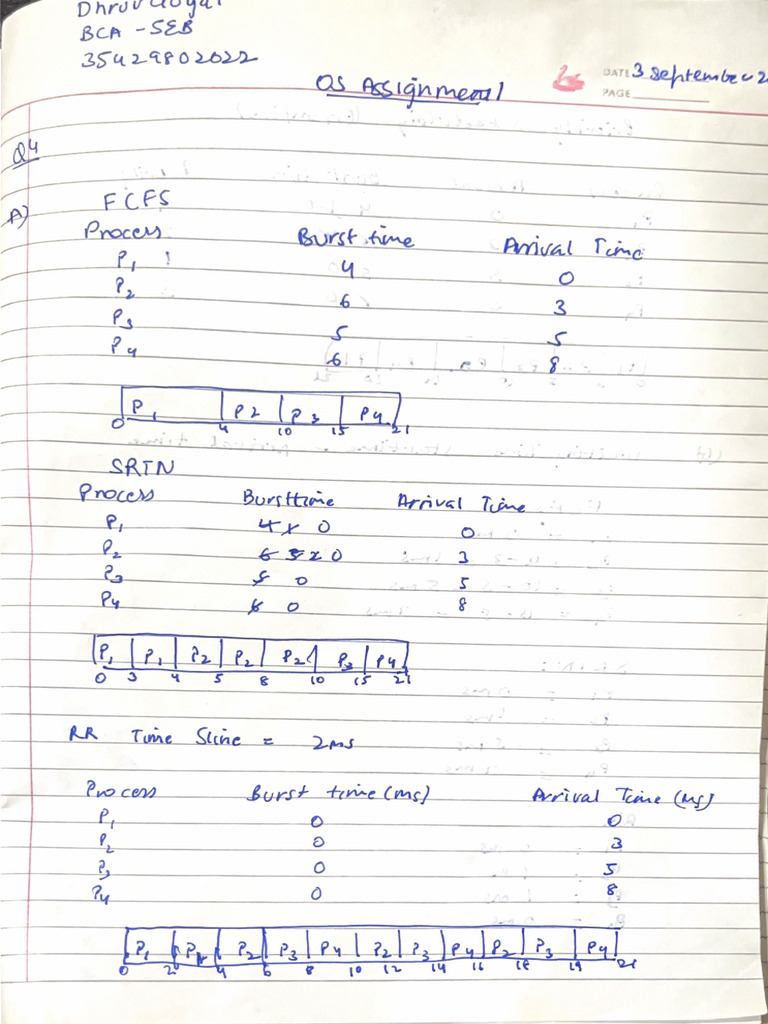 Dhruv Goyal
BCA - SEB
35429802022
DATE 3 September 2
PAGE
OS Assignment
Q4
A) FCFS
Process Burst time Arrival Time
P1 4 0
P2 6 3
P3 5 5
P4 6 8
P1 P2 P3 P4
0 4 10 15 21
SRTN
Process Bursttime Arrival Time
P1 4 1 0 0
P2 6 5 2 0 3
P3 5 0 5
P4 6 0 8
P1 P1 P2 P2 P2 P3 P4
0 3 4 5 8 10 15 21
RR Time Sline = 2ms
Process Burst time (ms) Arrival Time (Ms)
P1 0 0
P2 0 3
P3 0 5
P4 0 8
P1 P1 P2 P3 P4 P2 P3 P4 P2 P3 P4
0 2 4 6 8 10 12 14 16 18 19 21